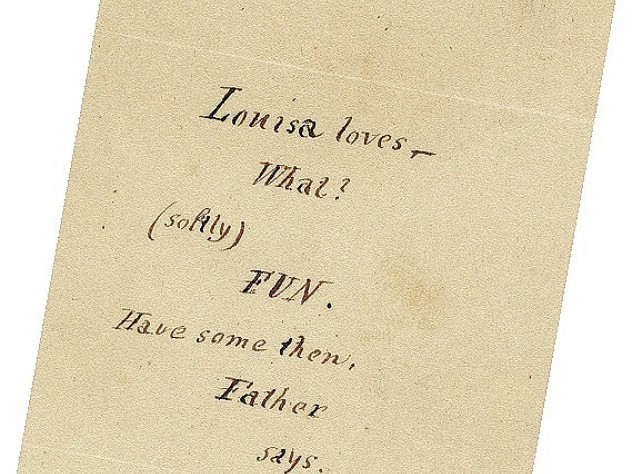 Louisa loves–
What?
(softly)
FUN.
Have some then,
Father
says.